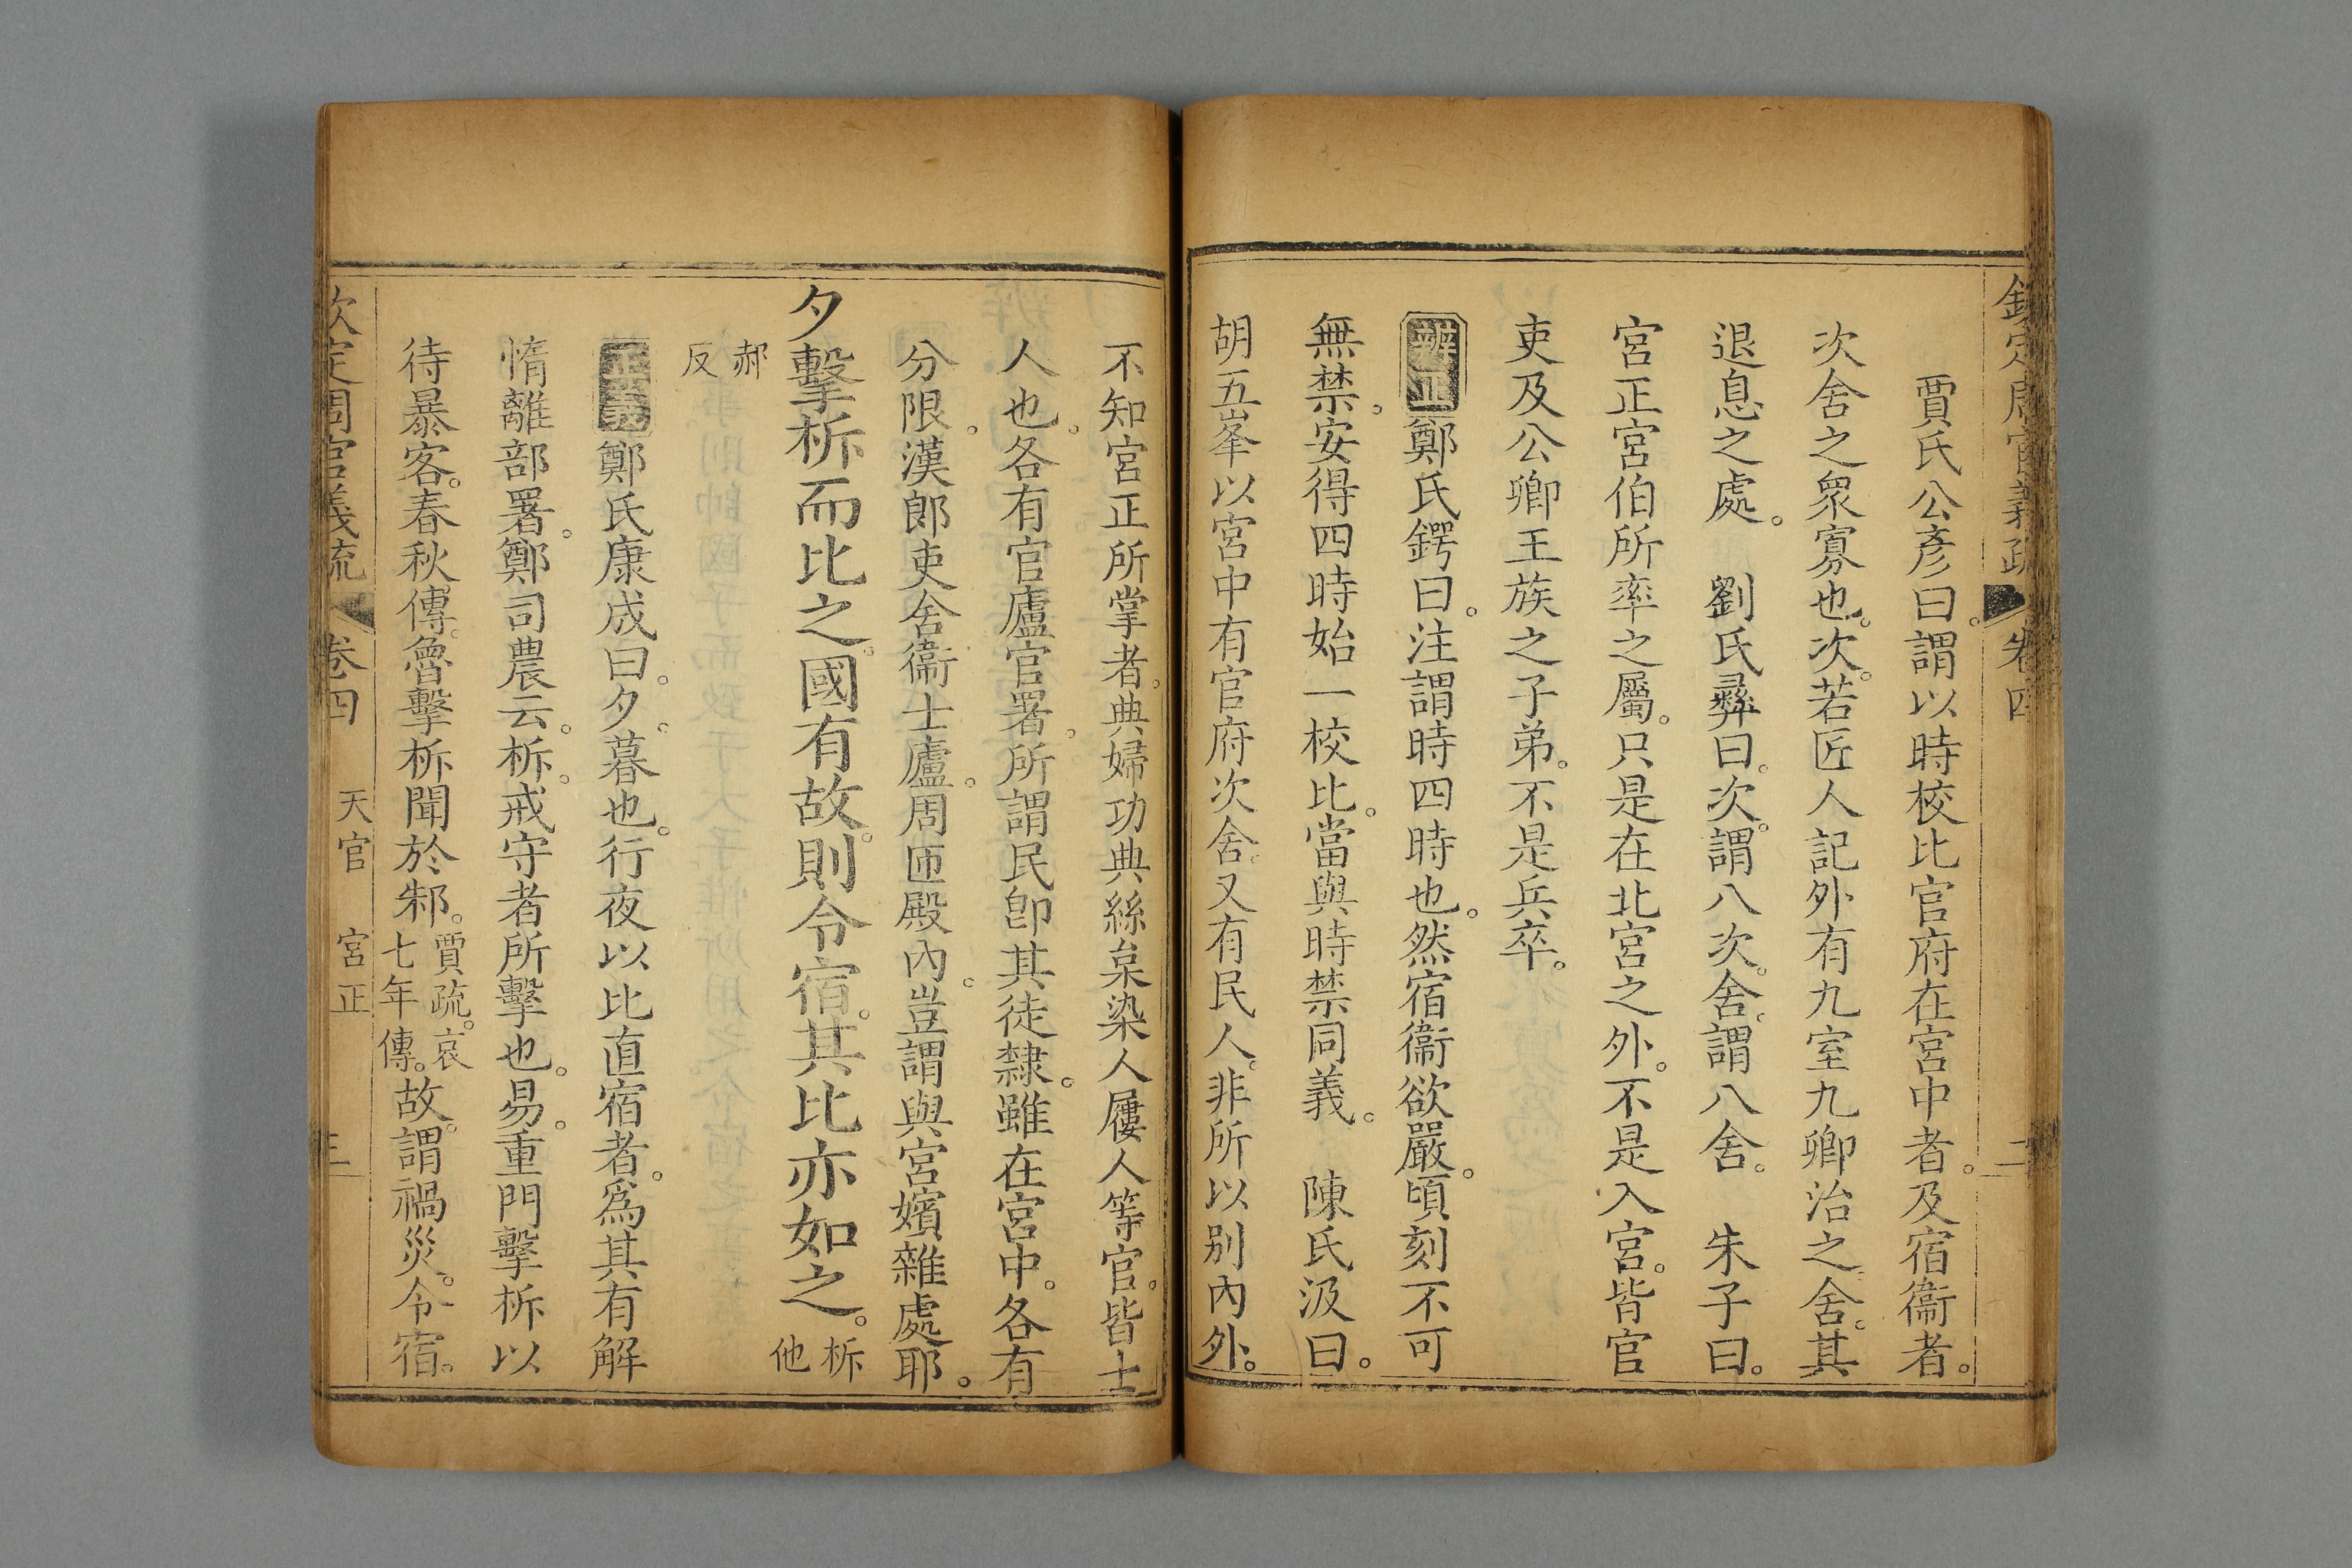 欽定周官義疏 卷四 二
賈氏公彥曰。謂以時校比官府在宮中者。及宿衞者。
次舍之衆寡也。次。若匠人記外有九室九卿治之。舍。其
退息之處。 劉氏彝曰。次。謂八次。舍。謂八舍。 朱子曰。
宮正宮伯所率之屬。只是在北宮之外。不是入宮。皆官
吏及公卿王族之子弟。不是兵卒。
辨正鄭氏鍔曰。注謂時四時也。然宿衞欲嚴。頃刻不可
無禁。安得四時始一校比。當與時禁同義。 陳氏汲曰。
胡五峯以宮中有官府次舍。又有民人。非所以别內外。
不知宮正所掌者。典婦功典絲枲染人屨人等官。皆士
人也。各有官廬官署。所謂民卽其徒隸。雖在宮中。各有
分限。漢郎吏舍衞士廬。周匝殿內。豈謂與宮嬪雜處耶。
夕擊柝而比之。國有故。則令宿。其比亦如之。柝他
郝反
正義鄭氏康成曰。夕。暮也。行夜以比直宿者。爲其有解
惰離部署。鄭司農云。柝。戒守者所擊也。易。重門擊柝以
待暴客。春秋傳。魯擊柝聞於邾。賈疏。哀七年傳。故。謂禍災。令宿。
欽定周官義疏 卷四 天官 宮正 三